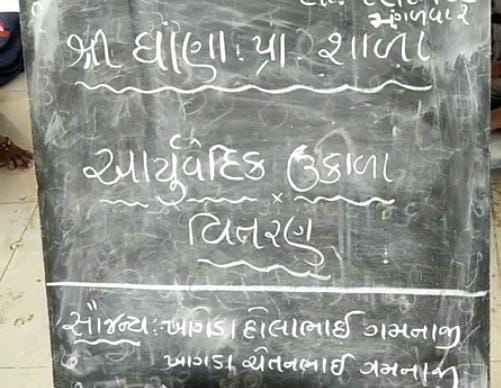 મંગળવાર
શ્રી ઘાંણા. પ્રા. શાળા
આર્યુવેદિક ઉકાળા
×
વિતરણ
સૌજન્ય: ખાગડા હોલાભાઈ ગમનાજી
ખાગડા ચેતનભાઈ ગમનાજી